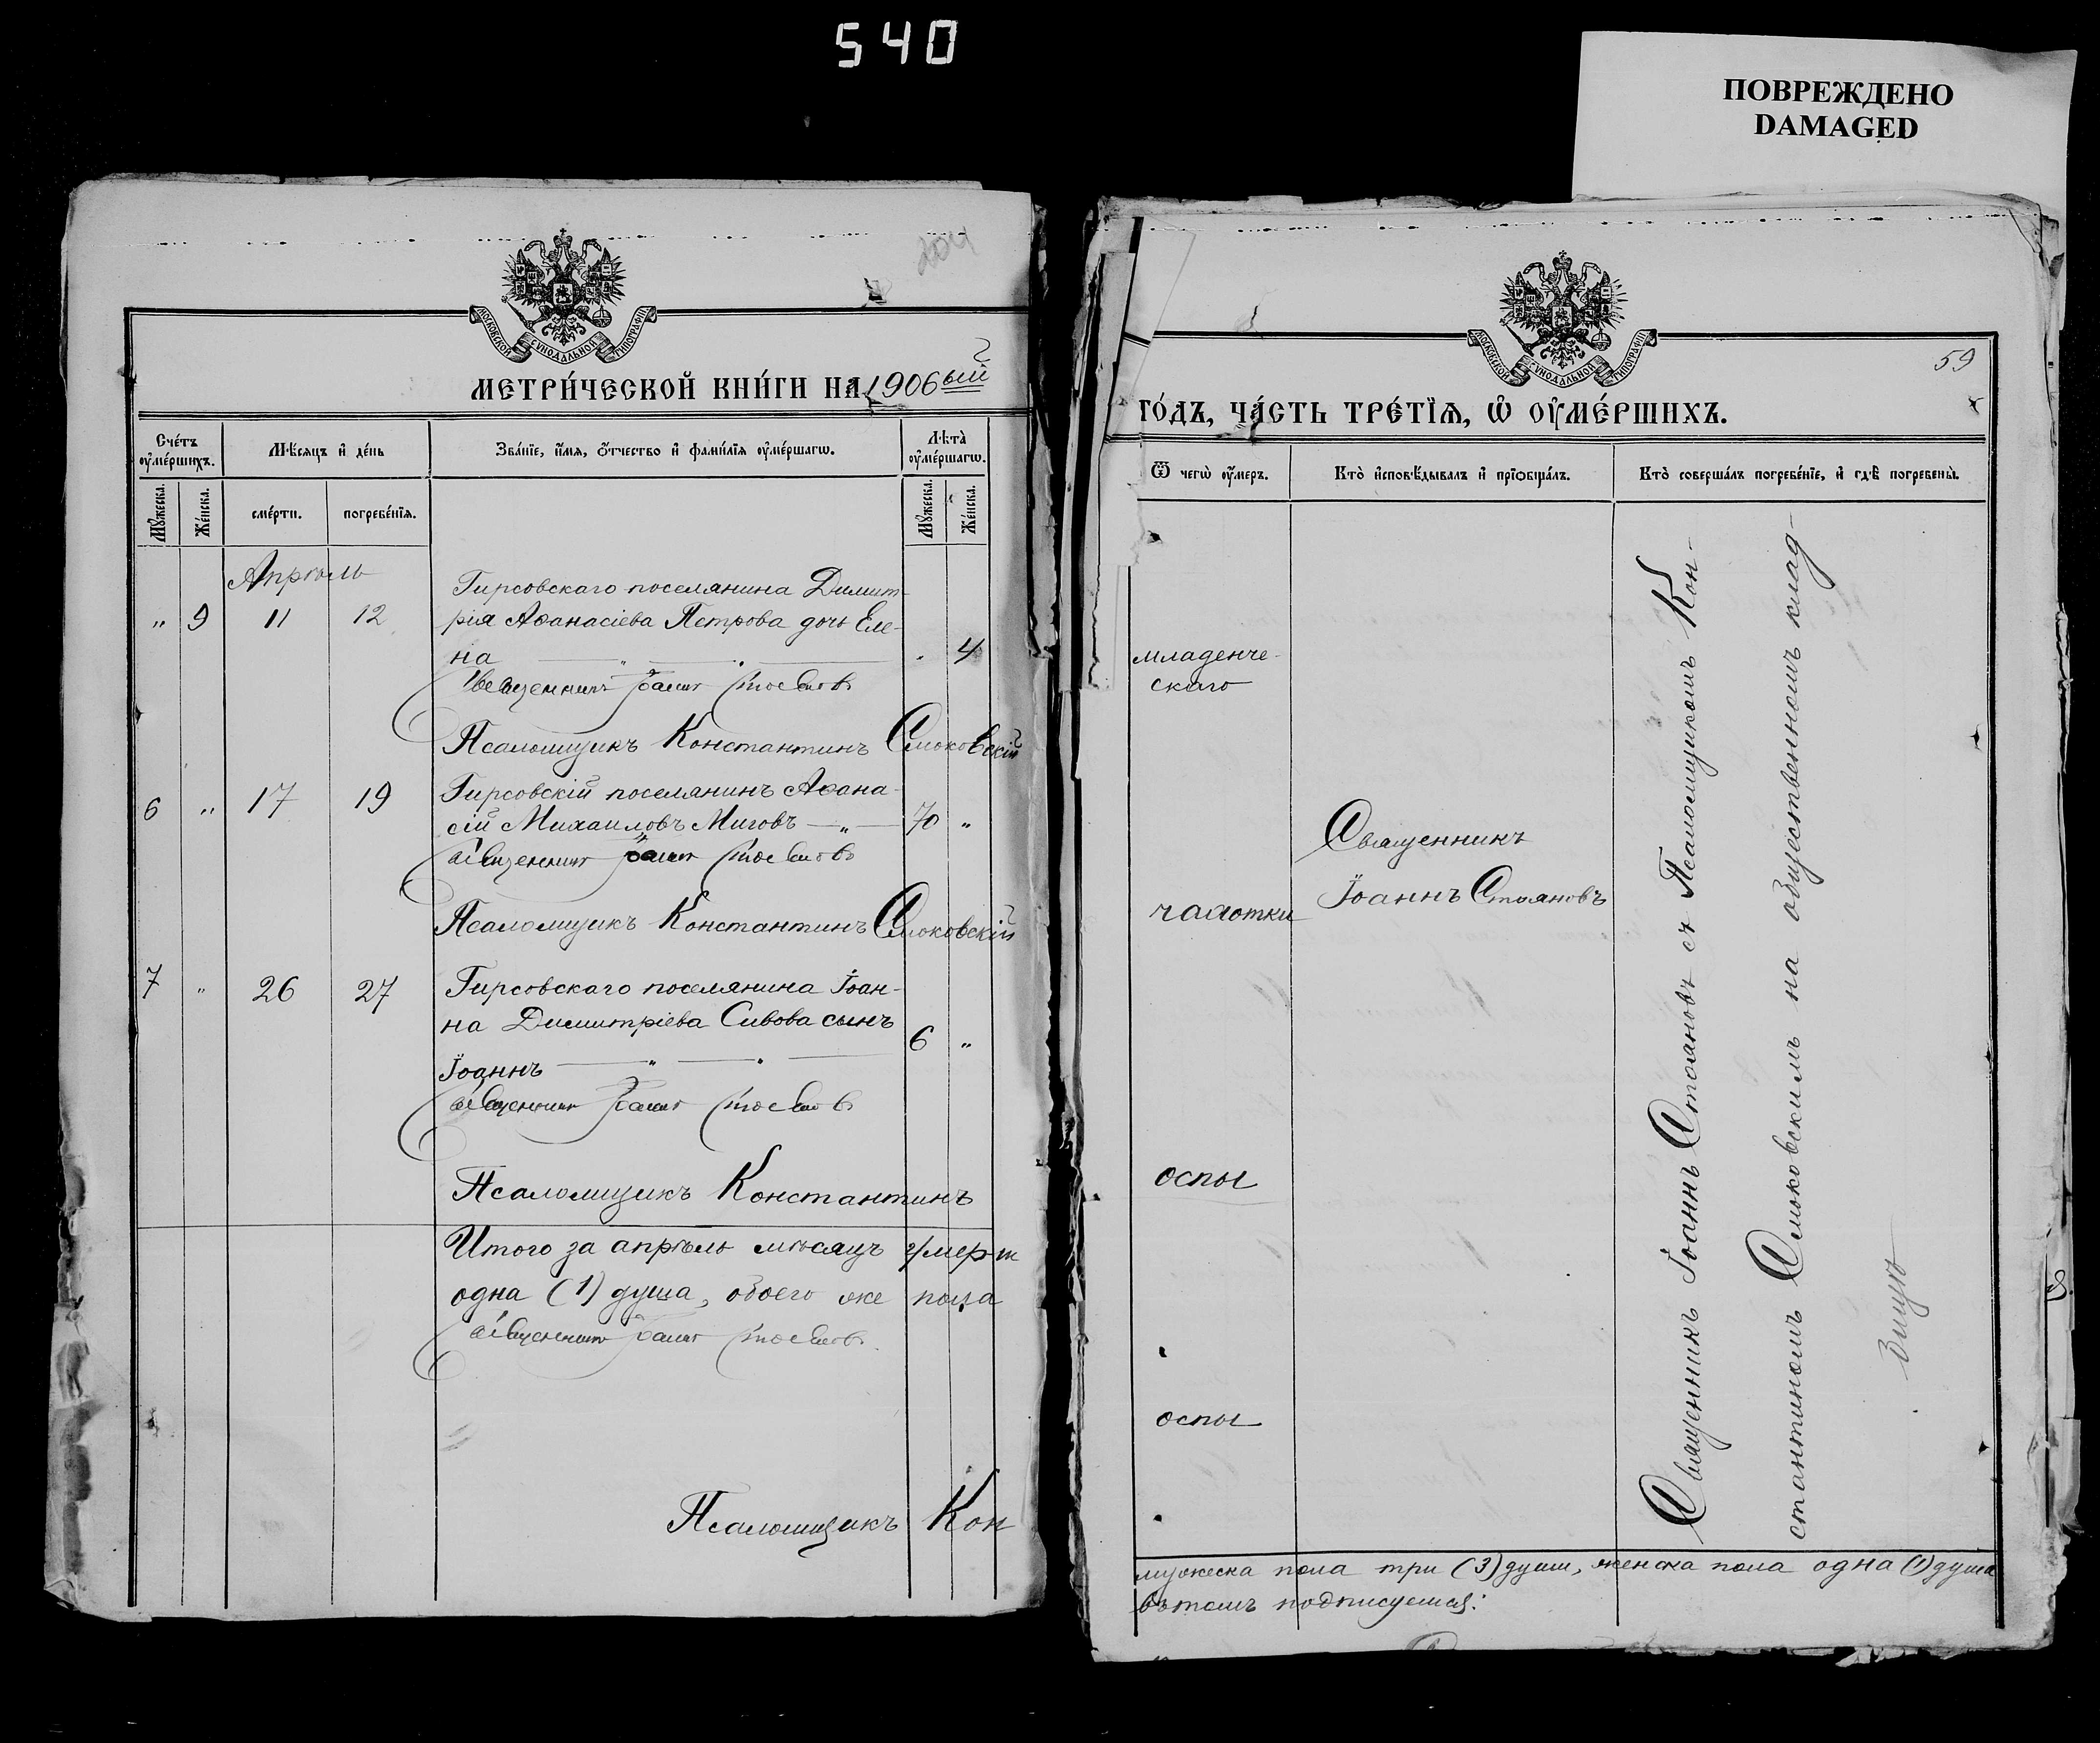 540
ПОВРЕЖДЕНО
DAMAGED
МОСКОВСКОЙ СѴНОДАЛЬНОЙ ТИПОГРАФІИ
МЕТРИ́ЧЕСКОЙ КНИ́ГИ НА 1906ый
Сче́тъ оу҆ме́ршихъ.
Мѣ́сяцъ и҆ де́нь
Зва́нїе, и҆́мя, ѻ҆́тчество и҆ фами́лїя оу҆ме́ршагѡ.
Лѣ́та оу҆ме́ршагѡ.
Мꙋ́жеска.
Же́нска.
сме́рти.
погребе́нїя.
Мꙋ́жеска.
Же́нска.
Апрѣль
" 9 11 12
Гирсовскаго поселянина Димит-
рія Аѳанасіева Петрова дочь Еле-
на — " — " — " 4
Священникъ Іоаннъ Стояновъ
Псаломщикъ Константинъ Смоковскій
6 " 17 19
Гирсовскій поселянинъ Аѳана-
сій Михаиловъ Миговъ — " — 70 "
Священникъ Іоаннъ Стояновъ
Псаломщикъ Константинъ Смоковскій
7 " 26 27
Гирсовскаго поселянина Іоан-
на Димитріева Сивова сынъ
Іоаннъ — " — " — 6 "
Священникъ Іоаннъ Стояновъ
Псаломщикъ Константинъ
Итого за апрѣль мѣсяцъ умер-ш
одна (1) душа, обоего же пола
Священникъ Іоаннъ Стояновъ
Псаломщикъ Кон
МОСКОВСКОЙ СѴНОДАЛЬНОЙ ТИПОГРАФІИ
59
ГО́ДЪ, ЧА́СТЬ ТРЕ́ТЇЯ, Ѡ҆ ОУ҆МЕ́РШИХЪ.
Ѿ чегѡ̀ оу҆́меръ.
Кто̀ и҆сповѣ́дывалъ и҆ прїѻбща́лъ.
Кто̀ соверша́лъ погребе́нїе, и҆ гдѣ̀ погребены̀.
младенче-
скаго
чахотки
оспы
оспы
Священникъ
Іоаннъ Стояновъ
Священникъ Іоаннъ Стояновъ съ Псаломщикомъ Кон-
стантиномъ Смоковскимъ на общественномъ клад-
бищѣ
мужеска пола три (3) души, женска пола одна (1) душа
въ томъ подписуемся: